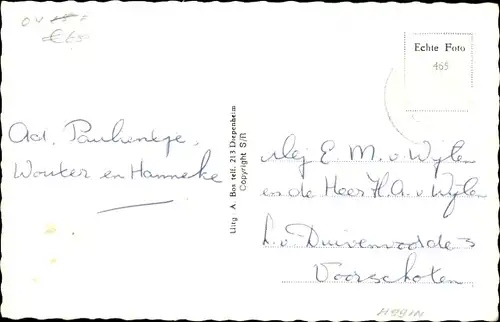 Echte Foto
465
Ad, Paulientje,
Wouter en Hanneke
Uitg A. Bos telf. 213 Diepenheim
Copyright S/R
Mej E. M. v. Wijlen
en de Heer H. A. v. Wijlen
L. v. Duivenvoorde 3
Voorschoten